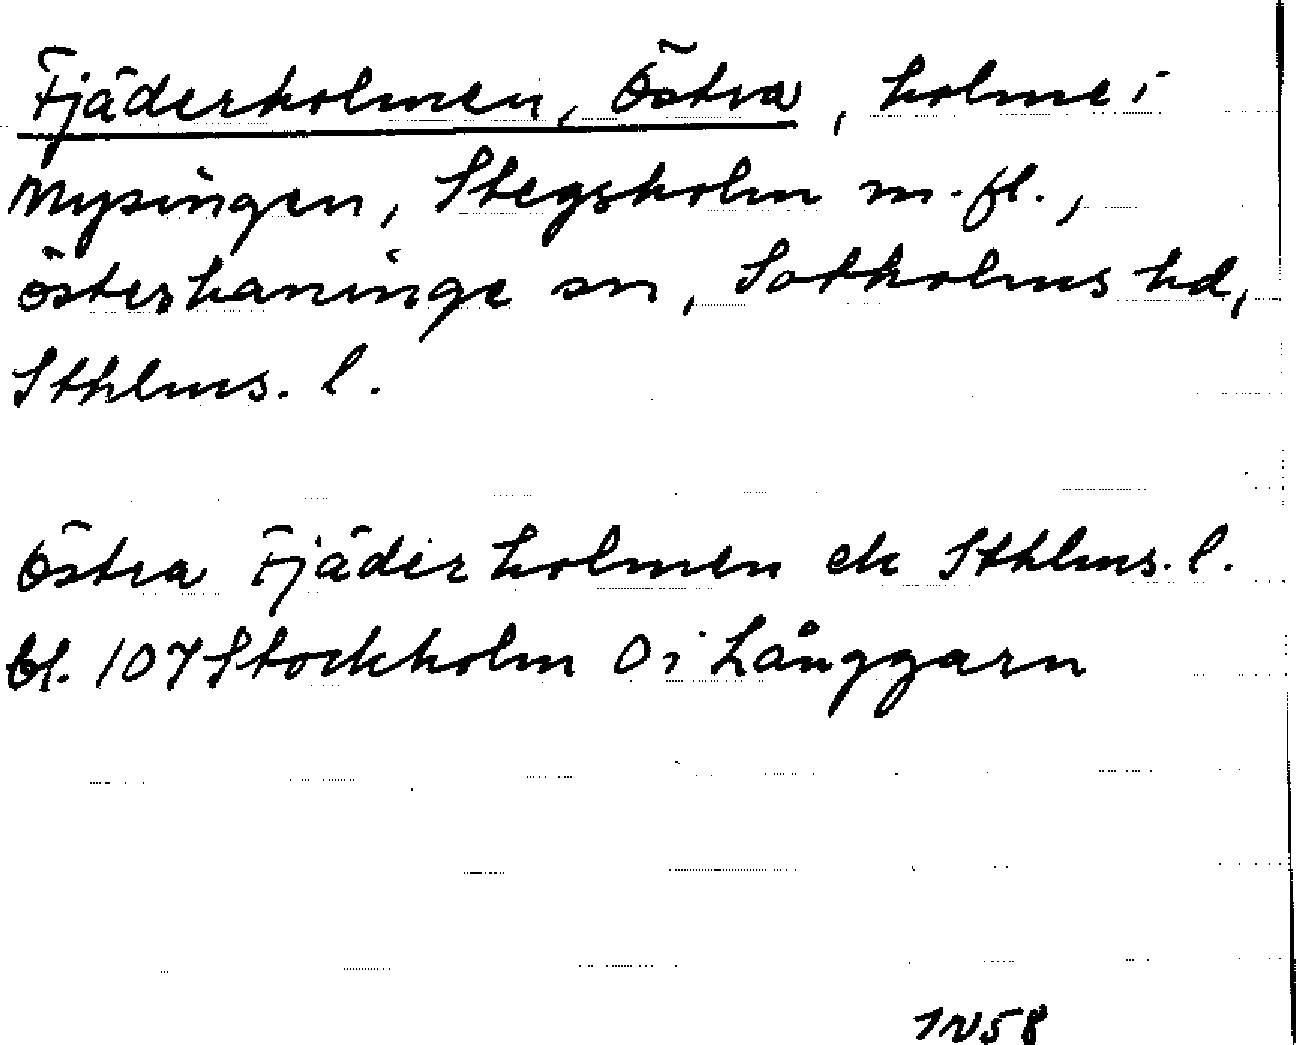 Fjäderholmen, Östra, holme i
Mysingen, Stegsholm m.fl.,
Österhaninge sn, Sotholms hd,
Sthlms. l.
Östra Fjäderholmen ek Sthlms. l.
bl. 107 Stockholm O i Långgarn